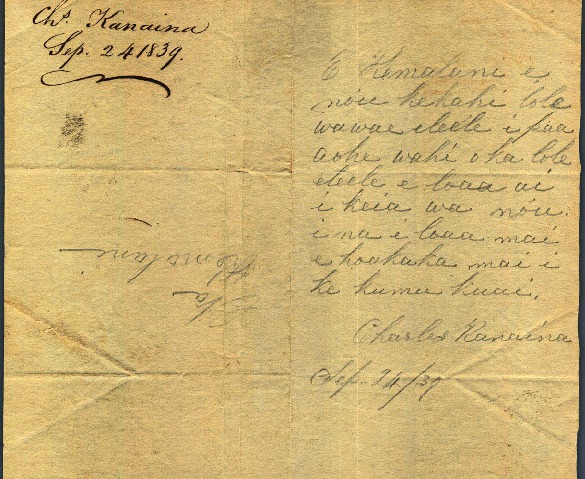 Chs. Kanaina
Sep. 24 1839.
E Hemalani e
nou kekahi lole
wawae eleele i paa
aohe wahi oka lole
eleele e loaa ai
i keia wa nou.
i na i loaa mai
e hookaka mai i
ke kumu kuai.
Charles Kanaina
Sep. 24/39
Na
Hemalani